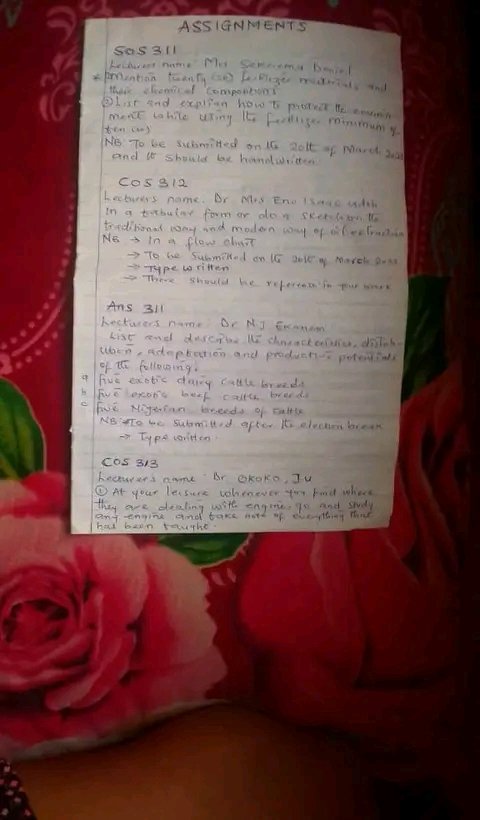 ASSIGNMENTS
SOS 311
Lecturers name: Mrs Daniel
* Mention twenty (20) fertilizer materials and
their chemical compositions
② List and explian how to protect the environ
ment while using the fertilizer minimum of
ten (10)
NB: To be submitted on the 20th of March
and it should be handwritten
COS 312
Lecturers name. Dr Mrs Eno Isaac
In a tabular form or do a sketch on the
traditional way and modern way of oil extraction
NB → In a flow chart
→ To be submitted on the 20th of March
→ Type written
→ There should be reference in your work
Ans 311
Lecturers name: Dr N J Ekanem
List and describe the characteristics, distrib-
ution, adaptation and productive potentials
of the following.
a five exotic dairy cattle breeds
b five exotic beef cattle breeds
c five Nigerian breeds of cattle
NB: → To be submitted after the election break
→ Type written.
COS 313
Lecturer's name: Dr. OKOKO, JU
① At your leisure whenever you find where
they are dealing with engine, go and study
any engine and take note of everything that
has been taught.